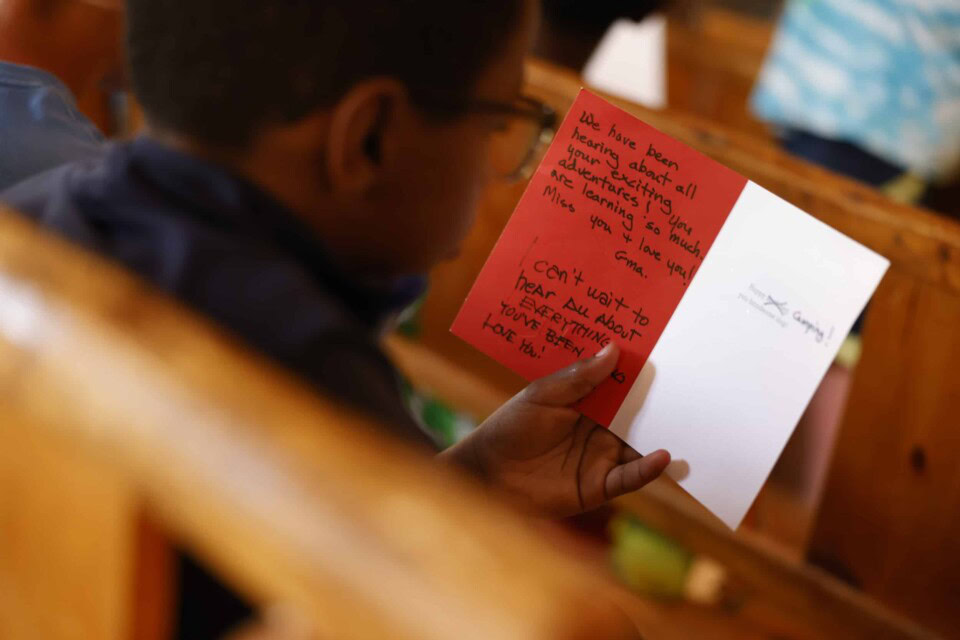 We have been
hearing about all
your exciting
adventures! You
are learning so much.
Miss you + love you!
Gma.
Can't wait to
hear All About
EVERYTHING
YOU'VE BEEN
LOVE YOU!
Happy
Camping!
you handsome dog!